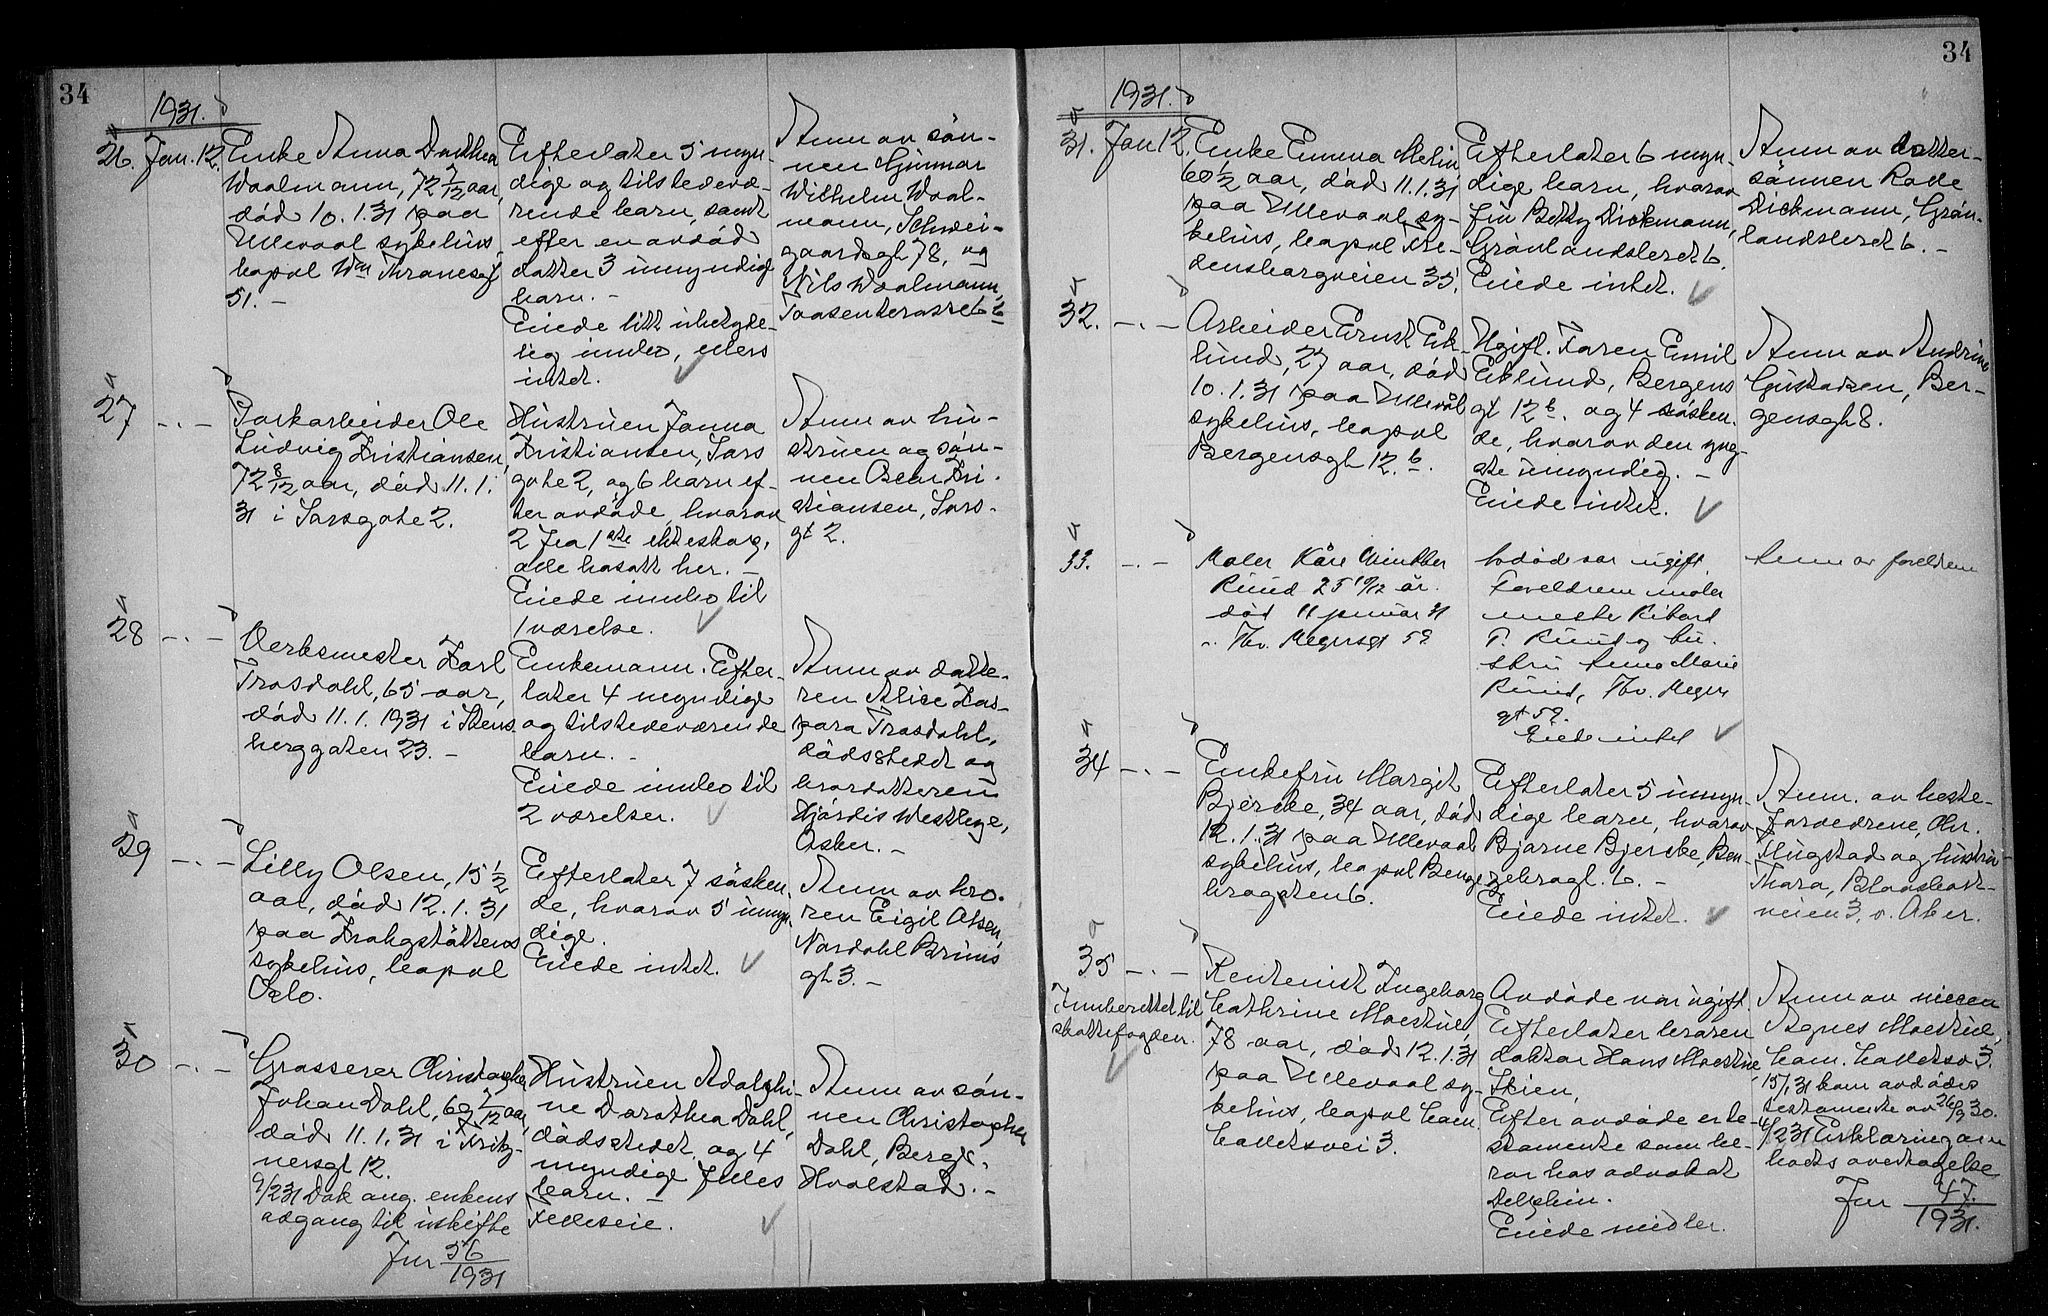 34
1931.
26. Jan. 12. Enke Anna Dorthea
Waalmann, 72 7/12 aar,
död 10.1.31 paa
Ullevaal sykehus,
bopæl Wm Thranesgt
51. –
Efterlater 5 myn-
dige og tilstedevæ-
rende barn, samt
efter en avdöd
datter 3 umyndige
barn. –
Eiede litt ubetyde-
lig innbo, ellers
intet.
Anm av sön-
nen Gunnar
Wilhelm Waal-
mann, Schwei-
gaardsgt 78, og
Nils Waalmann,
Taasenterasse 6 b
27 – . – Parkarbeider Ole
Ludvig Kristiansen,
72 8/12 aar, död 11.1.
31 i Sarsgate 2.
Hustruen Janna
Kristiansen, Sars
gate 2, og 6 barn ef-
ter avdöde, hvorav
2 fra 1ste ekteskap,
alle bosatt her. –
Eiede innbo til
1 værelse.
Anm av hu-
struen og sön-
nen Oscar Kri-
stiansen, Sars-
gt 2.
28 – . – Verksmester Karl
Trosdahl, 65 aar,
död 11.1.1931 i Stens-
berggaten 23. –
Enkemann. Efter-
later 4 myndige
og tilstedeværende
barn. –
Eiede innbo til
2 værelser.
Anm av datte-
ren Alice Kas-
para Trosdahl,
dödsstedet og
brordatteren
Hjördis Westbye,
Asker. –
29 – . – Lilly Olsen, 15 1/2
aar, död 12.1.31
paa Krohgstöttens
sykehus, bopæl
Oslo.
Efterlater 7 sösken-
de, hvorav 5 umyn-
dige.
Eiede intet.
Anm av bro-
ren Eigil Olsen,
Nordahl Bruns
gt 3. –
30 – . – Grosserer Christopher
Johan Dahl, 69 7/12 aar,
död 11.1.31 i Fritz-
nersgt 12.
9/2 31 Dok ang. enkens
adgang til uskifte
Jnr 56/1931
Hustruen Adolphi-
ne Dorothea Dahl,
dödsstedet, og 4
myndige felles
barn. –
Felleseie.
Anm av sön-
nen Christopher
Dahl, Berger,
Hvalstad. –
34
1931.
31. Jan 12. Enke Emma Melin,
60 1/2 aar, död 11.1.31
paa Ullevaal sy-
kehus, bopæl Are-
densborgveien 35.
Efterlater 6 myn-
dige barn, hvorav
fru Betty Dickmann,
Grönlandsleret 6.
Eiede intet.
Anm av datter-
sönnen Rode
Dickmann, Grön-
landsleret 6. –
32. – . – Arbeider Ernst Ek-
lund, 27 aar, död
10.1.31 paa Ullevål
sykehus, bopæl
Bergensgt 12 b.
Ugift. Faren Emil
Eklund, Bergens
gt 12 b. og 4 sösken-
de, hvorav den yng-
ste umyndig. –
Eiede intet.
Anm av Andrine
Gustavsen, Ber-
gensgt 8.
33. – . – Maler Kåre Winther
Ruud 25 10/12 år.
död 11 januar 31
i Thv. Meyersgt 59
Avdöde var ugift.
Foreldrene maler
mester Rikard
T. Ruud og hu-
stru Anna Marie
Ruud, Thv. Meyers
gt 59.
Eiede intet
Anm av foreldrene
34 – . – Enkefru Margit
Bjercke, 34 aar, död
12.1.31 paa Ullevaal
sykehus, bopæl Benze
bragaten 6.
Efterlater 5 umyn-
dige barn, hvorav
Bjarne Bjercke, Ben-
zebragt. 6. –
Eiede intet.
Anm. av beste-
foreldrene, Chr.
Flugstad og hustru
Thora, Blaasbort-
veien 3, v. Aker.
35 – . – Rentenist Ingeborg
Cathrine Moestue,
78 aar, död 12.1.31
paa Ullevaal sy-
kehus, bopæl Cam.
Collettsvei 3.
Innberettet til
skattefogden.
Avdöde var ugift.
Efterlater broren
doktor Hans Moestue,
Skien,
Efter avdöde er te-
stamente som be-
ror hos advokat
Delphin.
Eiede midler.
Anm av niecen
Agnes Moestue,
Cam. Collettsv 3.
15/1 31 kom avdödes
testamente av 26/9 30.
4/2 31 Erklæring om
boets overtagelse
Jnr 47./1931.